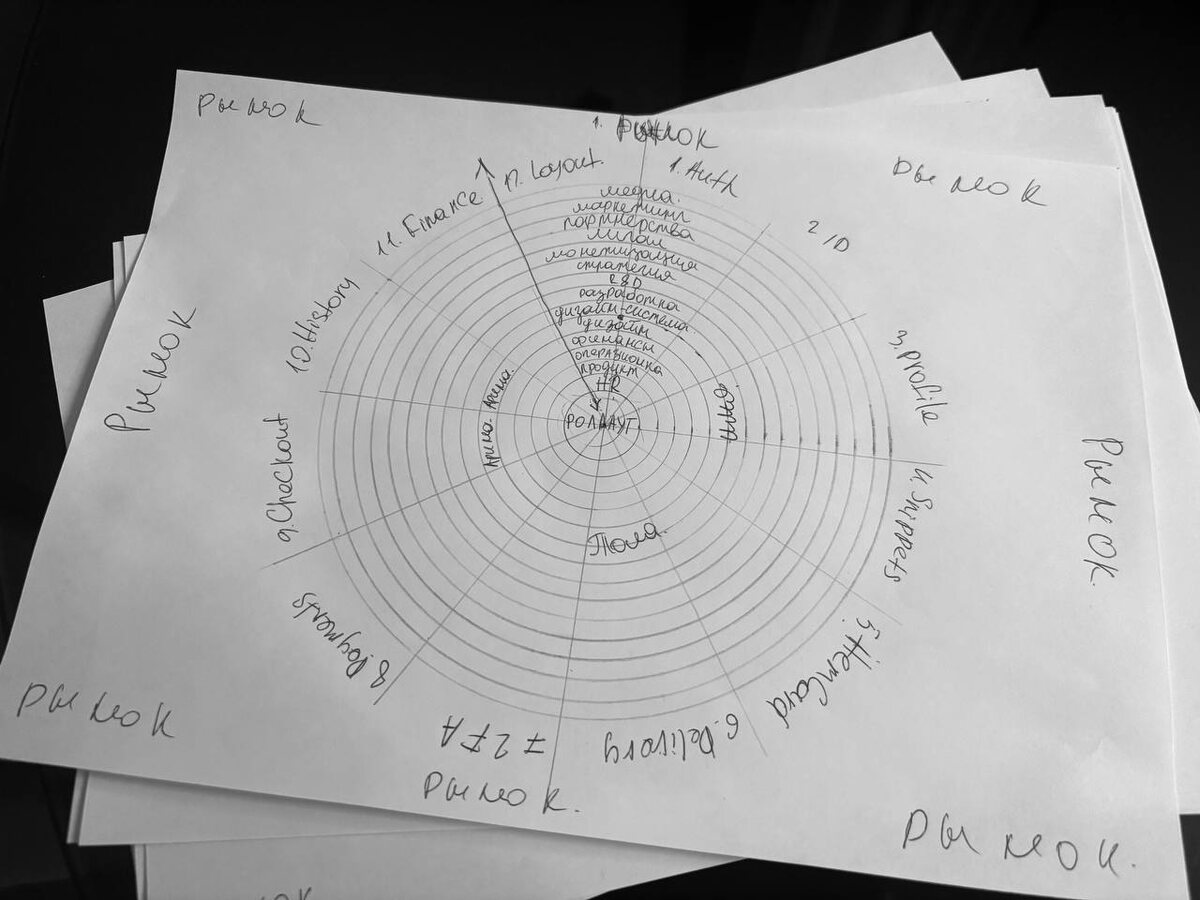 Рынок
1. Рынок
Рынок
12. Layout.
1. Auth
2 ID
3. Profile
4. Snippets
5. ItemCard
6. Delivery
7 2FA
8. Payments
9. Checkout
10. History
11. Finance
медиа.
маркетинг
партнерства
монетизация
стратегия
R&D
разработка
дизайн-система
дизайн
финансы
операционка
продукт
HR
РОЛЛАУТ
Поля.
Рынок
Рынок.
Рынок
Рынок.
Рынок.